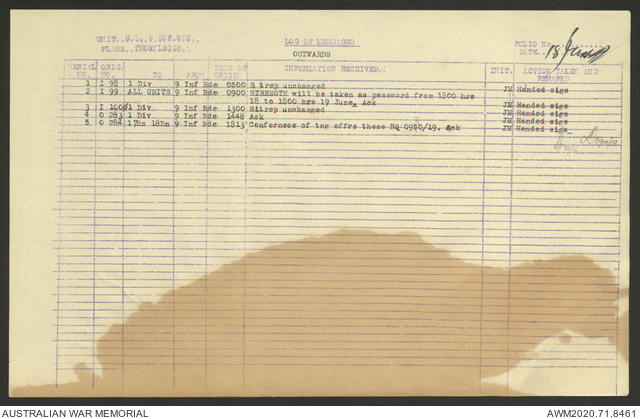 LOG OF MESSAGES
FOLIO No.
DATE. 18
UNIT. H.Q. 9 INF.BDE.
PLACE.
OUTWARDS
SERIAL NO. ORIG. NO. TO FROM TIME OF ORIGIN INFORMATION RECEIVED. INIT. ACTION TAKEN AND REMARKS
1 I 98 1 Div 9 Inf Bde 0500 Sitrep unchanged JM Handed sigs
2 I 99 ALL UNITS 9 Inf Bde 0900 STRENGTH will be taken as password from 1800 hrs JM Handed sigs
18 to 1800 hrs 19 June. Ack
3 I 100 1 Div. 9 Inf Bde 1300 Sitrep unchanged JM Handed sigs
4 O 283 1 Div 9 Inf Bde 1448 Ack JM Handed sigs
5 O 284 17Bn 18Bn 9 Inf Bde 1813 Conference of tng offrs these HQ /19. Ack JM Handed sigs
AUSTRALIAN WAR MEMORIAL
AWM2020.71.8461